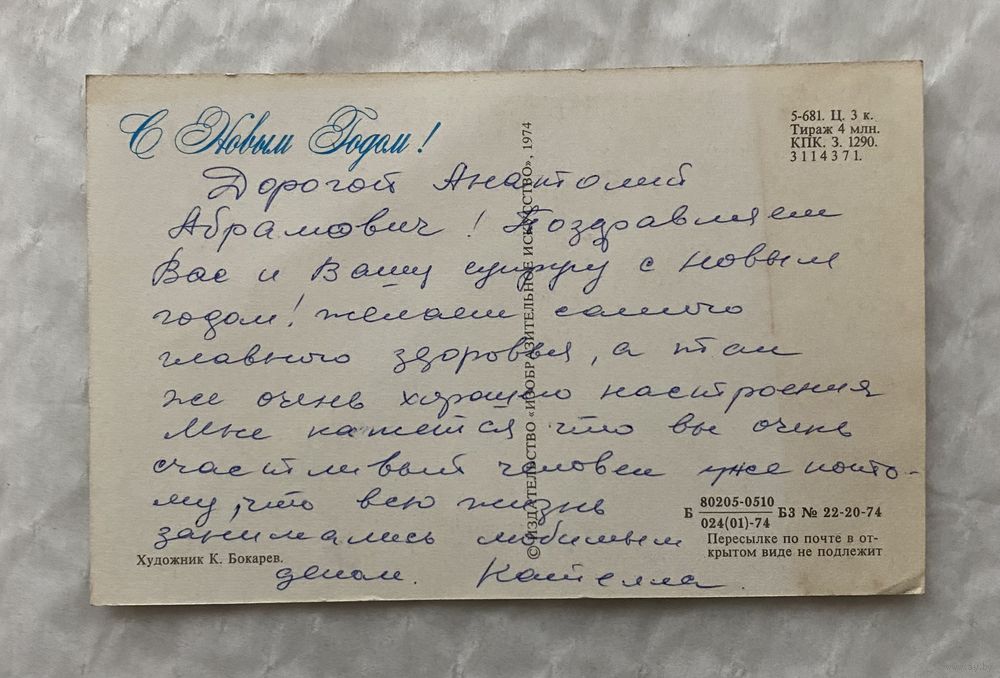 С Новым Годом!
5-681. Ц. 3 к.
Тираж 4 млн.
КПК. З. 1290.
3114371.
Дорогой Анатолий
Абрамович! Поздравляем
Вас и Вашу супругу с новым
годом! желаем самого
главного здоровья, а так
же очень хорошего настроения
Мне кажется что вы очень
счастливый человек уже пото-
му, что всю жизнь
занимались любимым
делом.
© ИЗДАТЕЛЬСТВО «ИЗОБРАЗИТЕЛЬНОЕ ИСКУССТВО», 1974
Художник К. Бокарев.
Б 80205-0510
024(01)-74 БЗ № 22-20-74
Пересылке по почте в от-
крытом виде не подлежит
www.ay.by